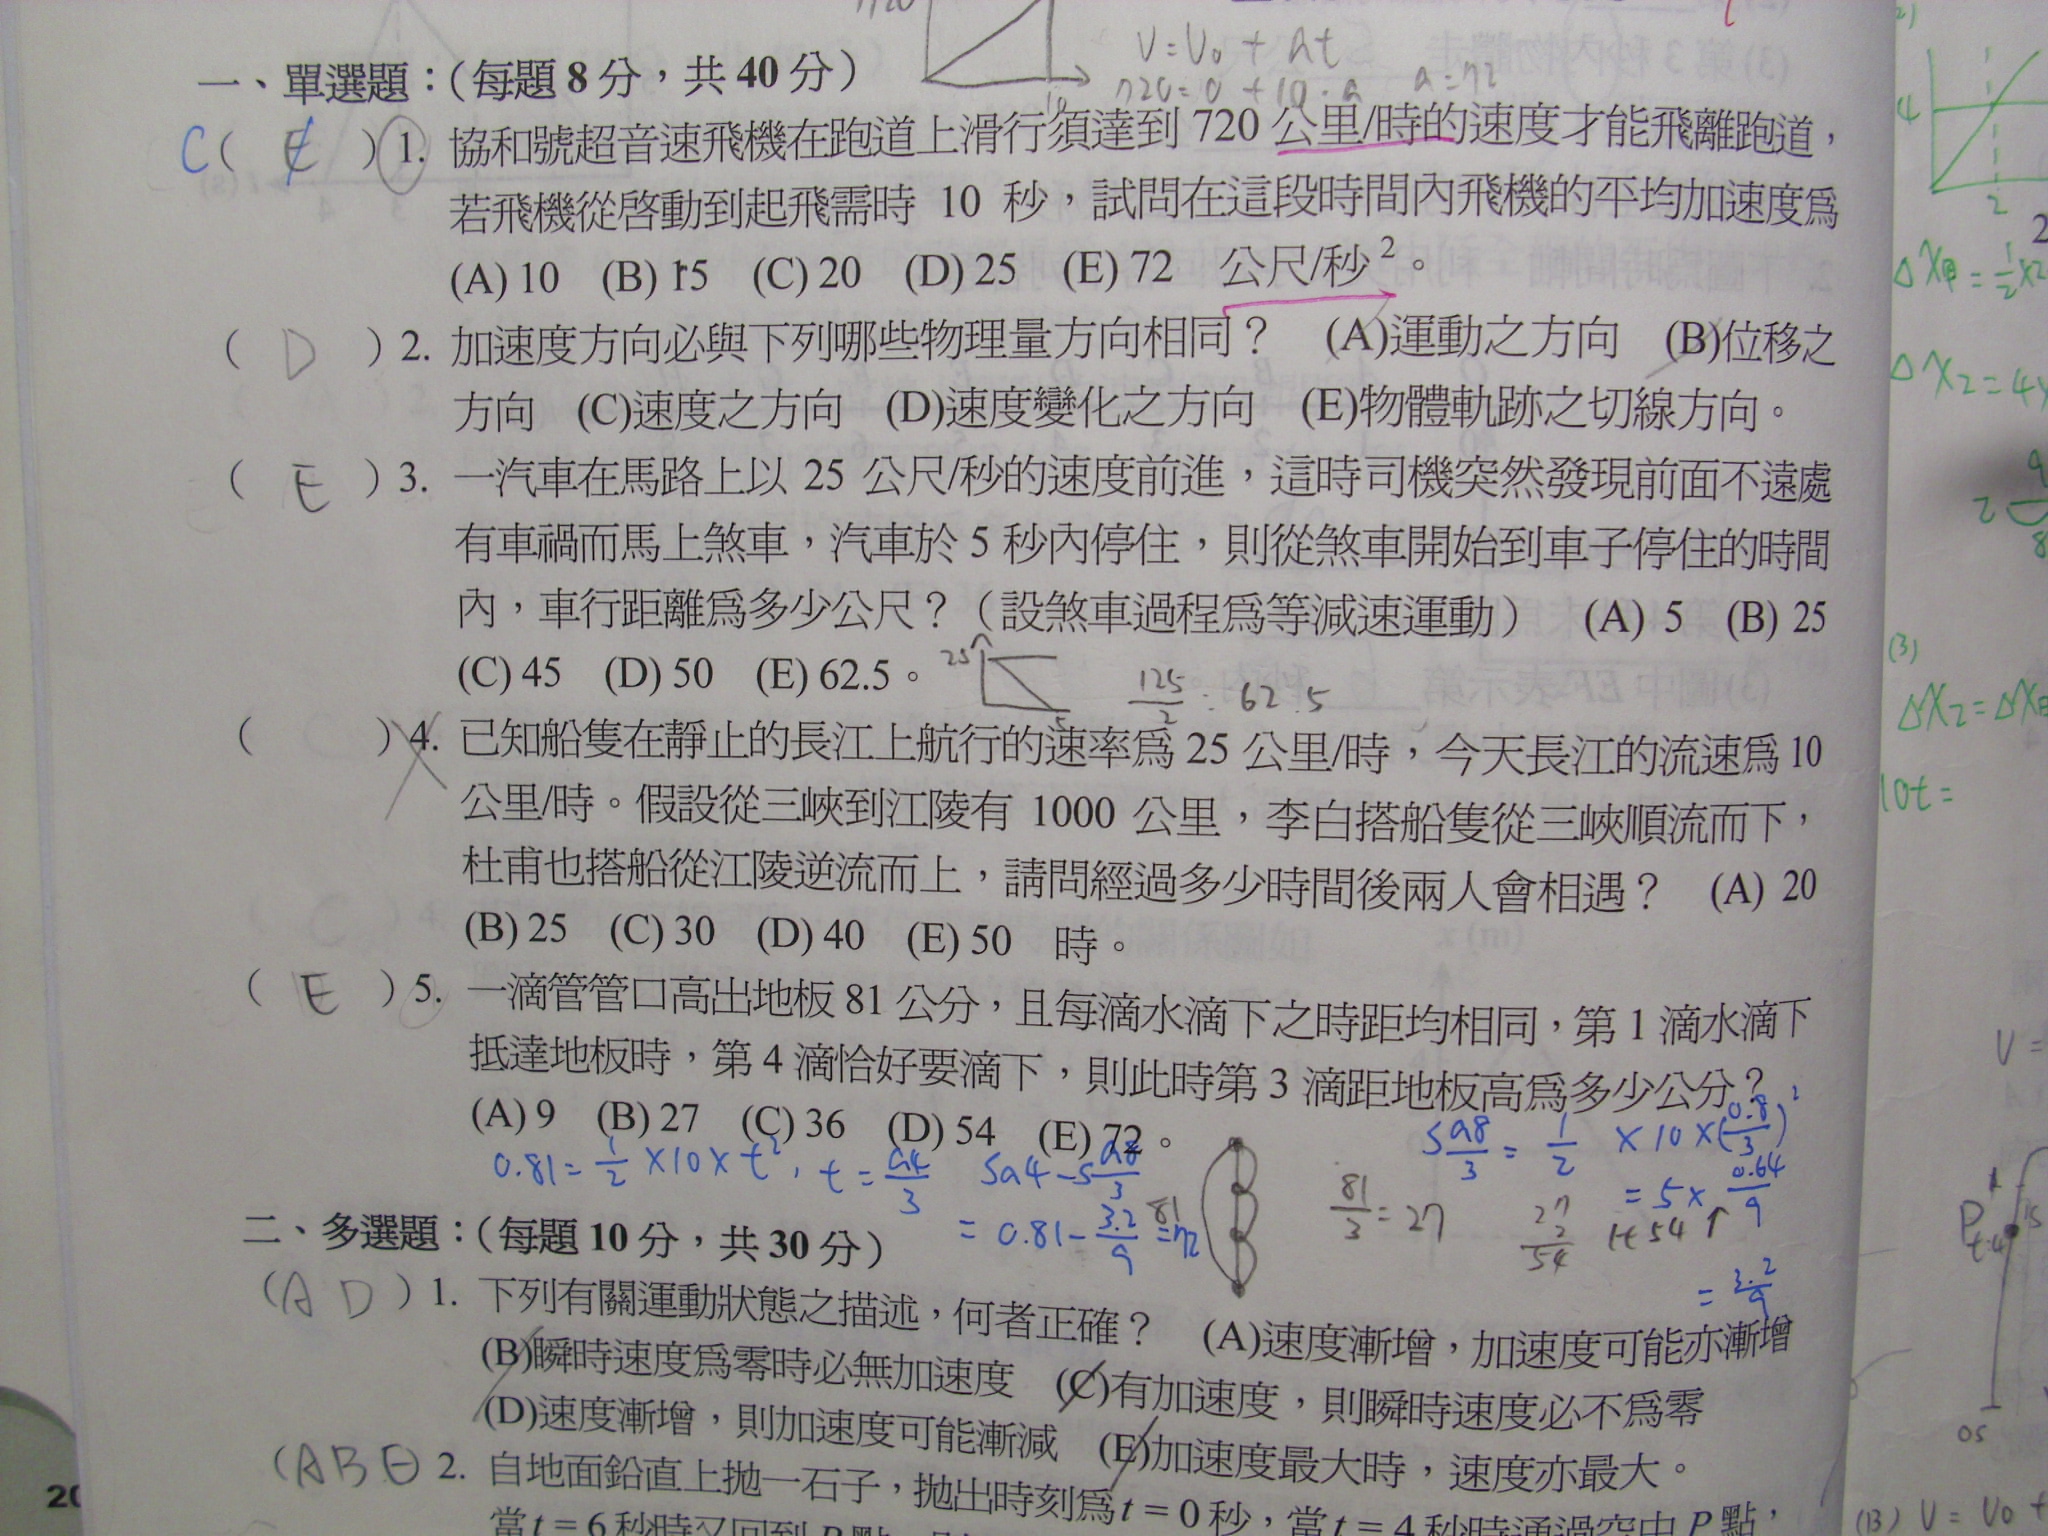 V = V₀ + at
720 = 0 + 10·a  a = 72
一、單選題：（每題 8 分，共 40 分）
C ( E ) 1. 協和號超音速飛機在跑道上滑行須達到 720 公里/時的速度才能飛離跑道，
若飛機從啓動到起飛需時 10 秒，試問在這段時間內飛機的平均加速度爲
(A) 10 (B) 15 (C) 20 (D) 25 (E) 72 公尺/秒²。
( D ) 2. 加速度方向必與下列哪些物理量方向相同？ (A)運動之方向 (B)位移之
方向 (C)速度之方向 (D)速度變化之方向 (E)物體軌跡之切線方向。
( E ) 3. 一汽車在馬路上以 25 公尺/秒的速度前進，這時司機突然發現前面不遠處
有車禍而馬上煞車，汽車於 5 秒內停住，則從煞車開始到車子停住的時間
內，車行距離爲多少公尺？（設煞車過程爲等減速運動） (A) 5 (B) 25
(C) 45 (D) 50 (E) 62.5。
25 5 125/2 = 62.5
( ) 4. 已知船隻在靜止的長江上航行的速率爲 25 公里/時，今天長江的流速爲 10
公里/時。假設從三峽到江陵有 1000 公里，李白搭船隻從三峽順流而下，
杜甫也搭船從江陵逆流而上，請問經過多少時間後兩人會相遇？ (A) 20
(B) 25 (C) 30 (D) 40 (E) 50 時。
( E ) 5. 一滴管管口高出地板 81 公分，且每滴水滴下之時距均相同，第 1 滴水滴下
抵達地板時，第 4 滴恰好要滴下，則此時第 3 滴距地板高爲多少公分？
(A) 9 (B) 27 (C) 36 (D) 54 (E) 72。
0.81 = 1/2 × 10 × t²,
= 1/2 × 10 × (0.8/3)²
= 5 × 0.64/9
= 3.2/9
= 0.81 - 3.2/9 = 72
81
81/3 = 27
27
2
54
二、多選題：（每題 10 分，共 30 分）
( A D ) 1. 下列有關運動狀態之描述，何者正確？ (A)速度漸增，加速度可能亦漸增
(B)瞬時速度爲零時必無加速度 (C)有加速度，則瞬時速度必不爲零
(D)速度漸增，則加速度可能漸減 (E)加速度最大時，速度亦最大。
( A B D 2. 自地面鉛直上拋一石子，拋出時刻爲 t = 0 秒，當 t = 4 秒時通過空中 P 點，
當 t = 6 秒時又回到 P 點，
4
2
Δx甲 = 1/2 × 2
Δx₂ = 4
(3)
Δx₂ = Δx甲
10t =
V =
P
0s
(13) V = V₀ +